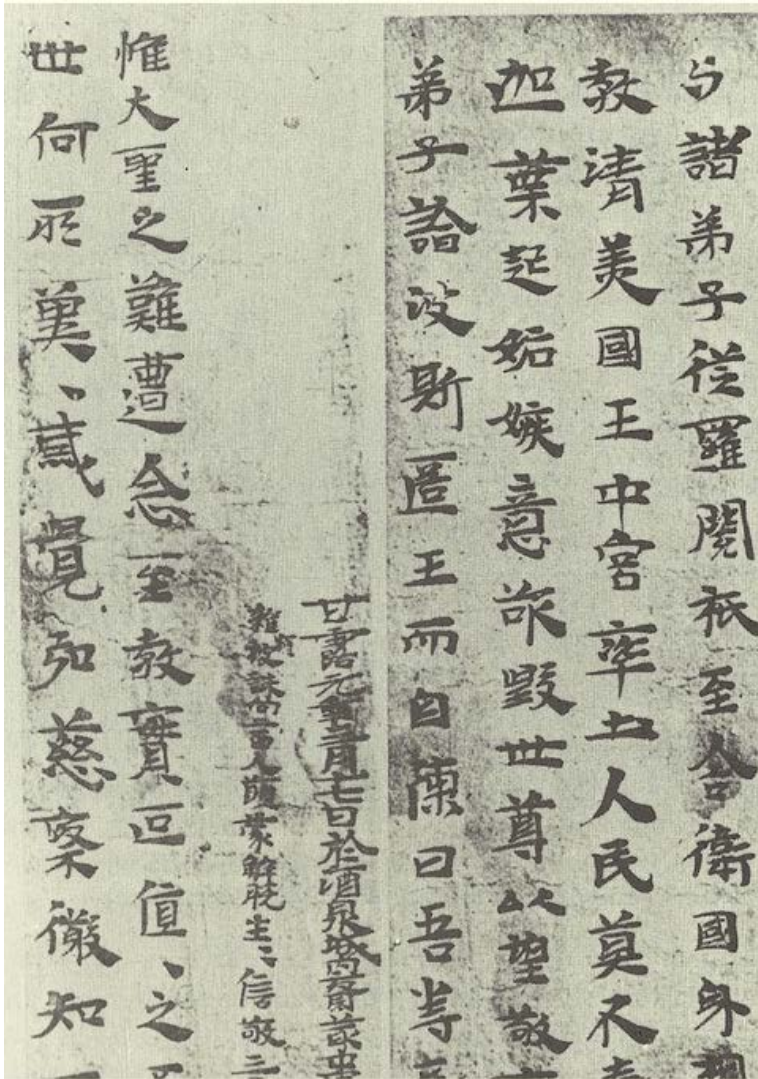 与諸弟子從羅閱祇至舍衛國身相
教清美國王中宮率土人民莫不奉
迦葉起妬嫉意欲毀世尊以望敬
弟子詣波斯匿王而自陳曰吾等
甘露元年三月十七日於酒泉城內齋叢中
雜類被誅向二百人願蒙解脫生〻信敬三
惟大聖之難遭念至教實叵值〻之
世何所冀〻貳覺弘慈稟儼知